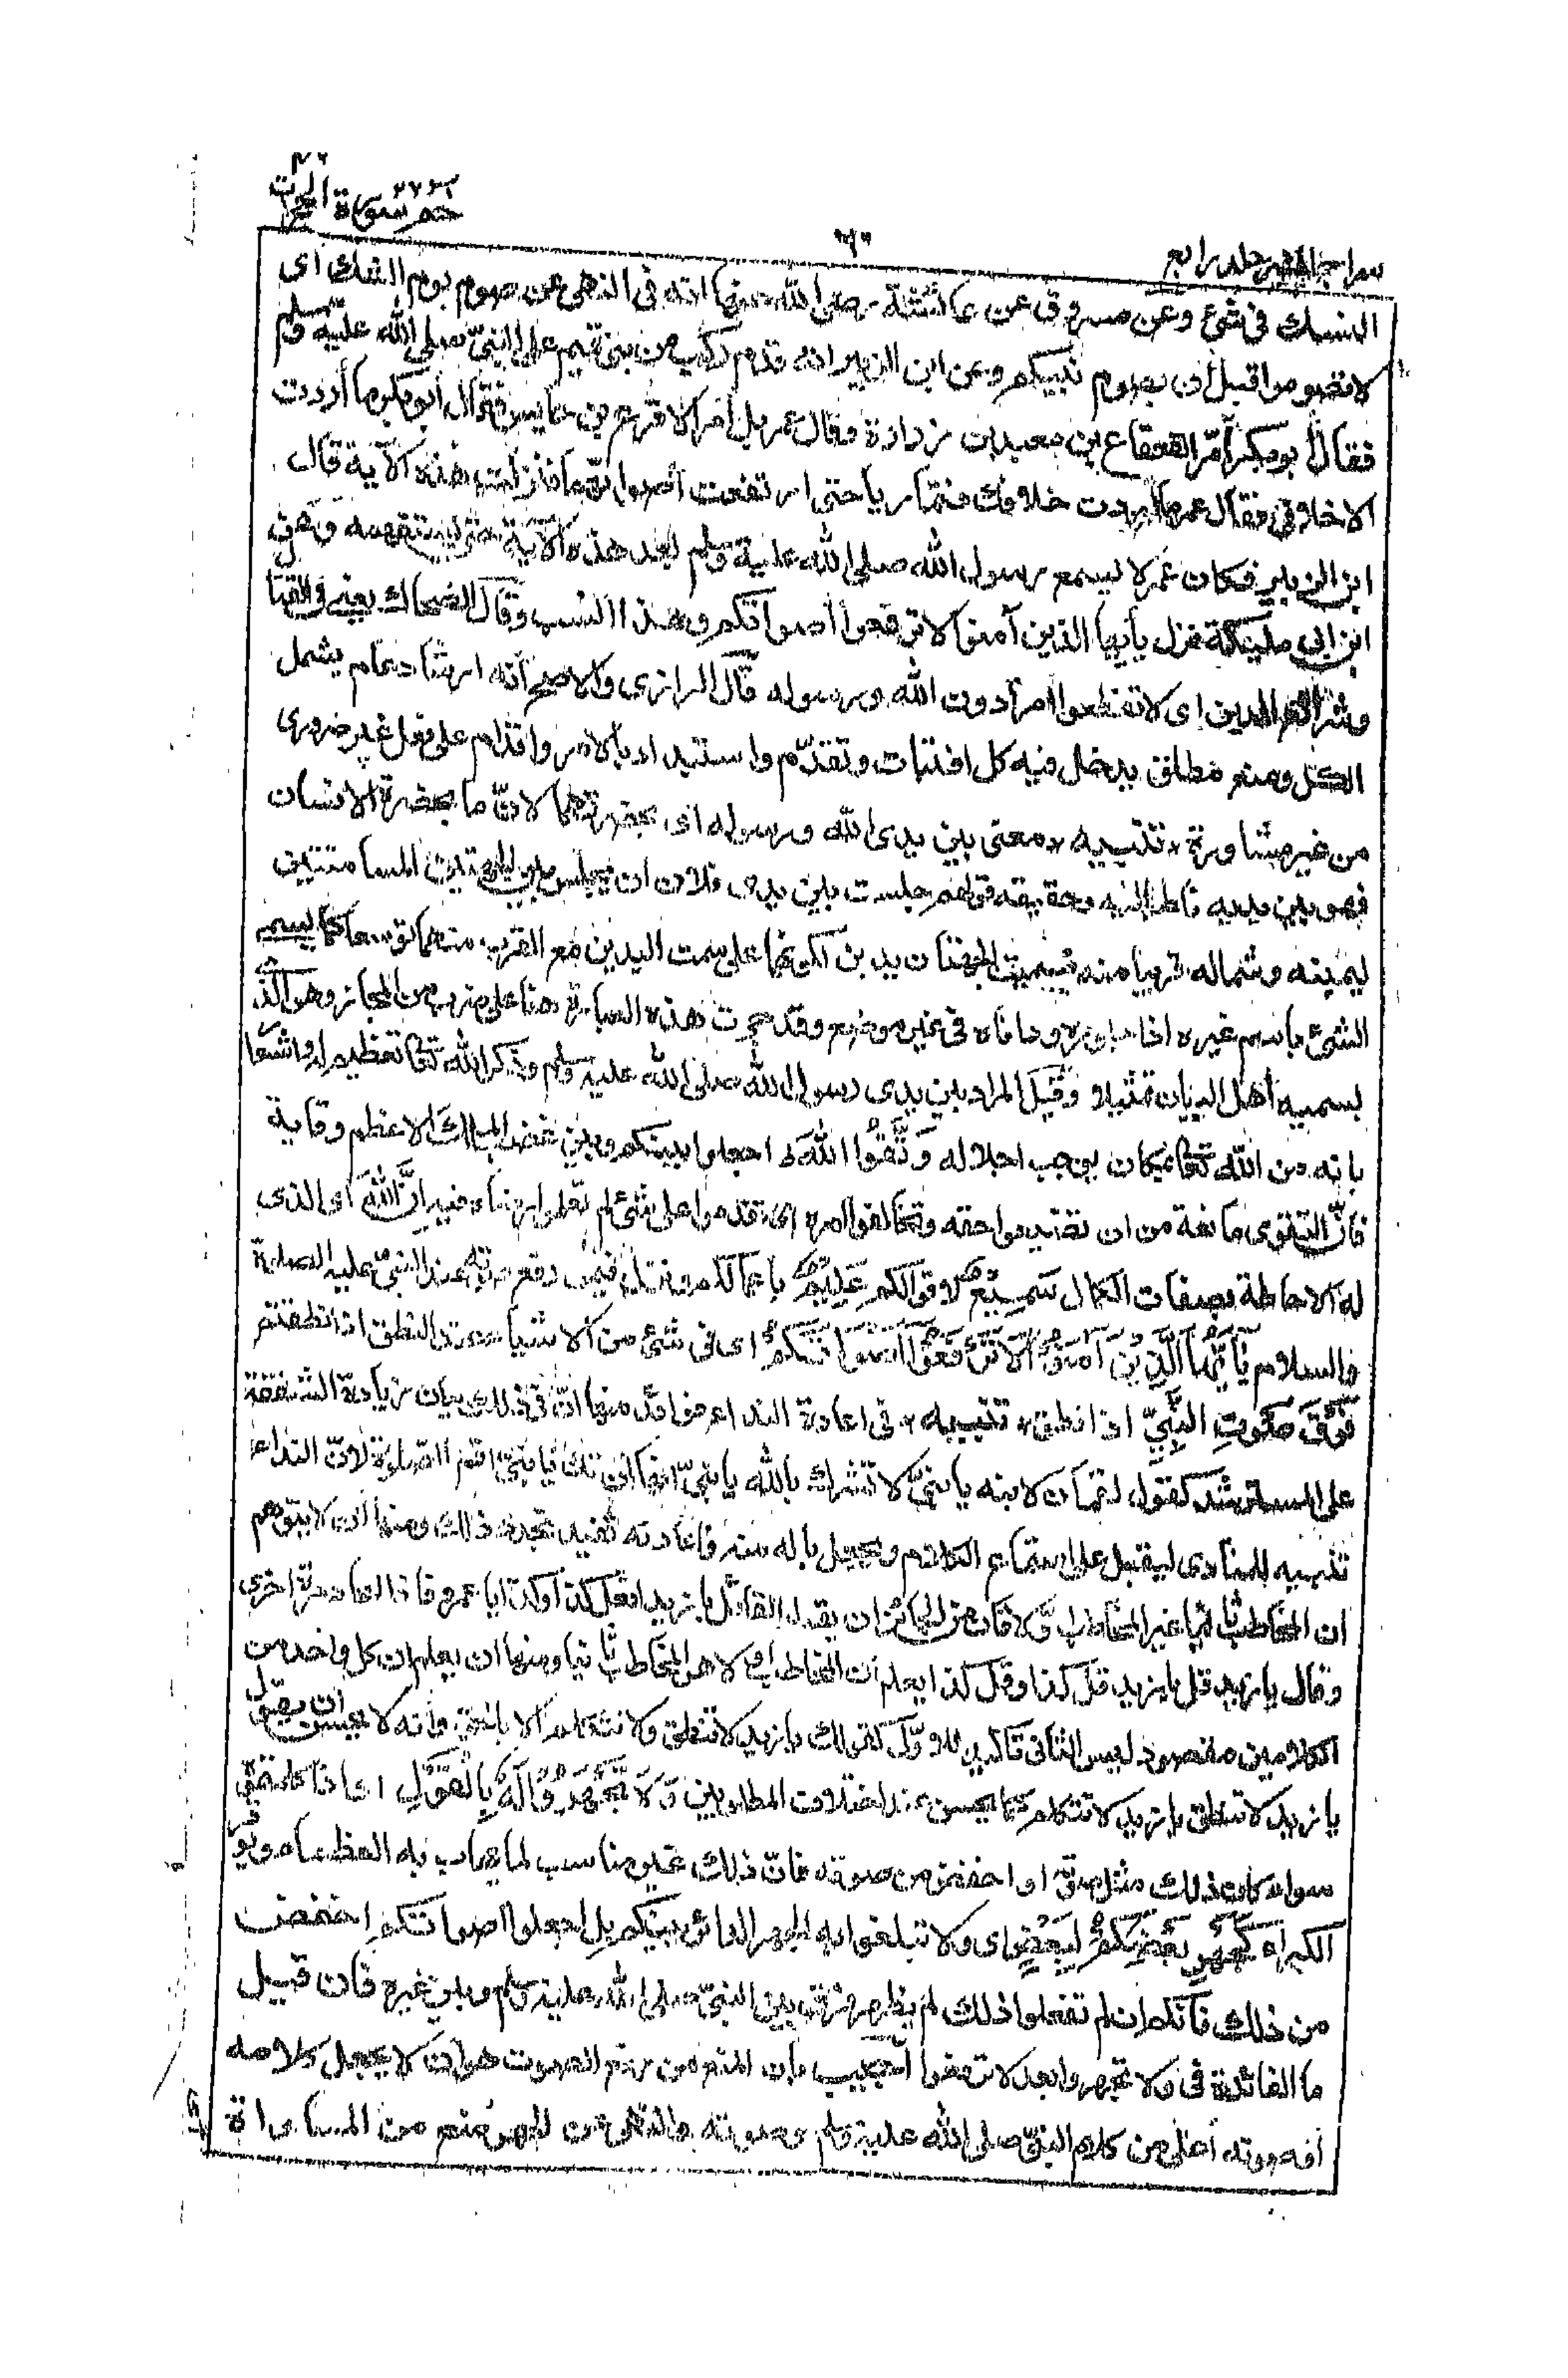 سراج المنير جلد رابع
٦٠
حم ٢٦ سورة الحجرات
النسك فى شئ وعن مسروق عن عائشة رضى الله عنها انه فى النهى عن صوم يوم الشك اى
لا تصوموا قبل أن يصوم نبيكم وعن ابن الزبير انه قدم ركب من بنى تميم على النبىّ صلى الله عليه وسلم
فقال أبو بكر أمّر القعقاع بن معبد بن زرارة وقال عمر بل أمر الاقرع بن حابس فقال أبو بكر ما أردت
الاخلافى فقال عمر ما أردت خلافك فتماريا حتى ارتفعت أصواتهما فنزلت هذه الآية قال
ابن الزبير فكان عمر لا يسمع رسول الله صلى الله عليه وسلم بعد هذه الآية حتى يستفهمه وعن
ابن ابى مليكة نزل يأيها الذين آمنوا لا ترفعوا أصواتكم وهذا انسب وقال الضحاك يعنى فى القتال
وشرائع الدين اى لا تقطعوا امرا دون الله ورسوله قال الرازى والاصح أنه ارشاد عام يشمل
الكل ومنع مطلق يدخل فيه كل افتيات وتقدّم واستبداد بالامر واقدام على فعل غير ضرورى
من غير مشاورة * تنبيه * معنى بين يدى الله ورسوله اى بحضرتهما لانّ ما بحضرة الانسان
فهو بين يديه ناظر اليه وحقيقة قولهم جلست بين يدى فلان ان يجلس بين الجهتين المسامتتين
ليمينه وشماله قريبا منه فسميت الجهتان يدين لكونهما على سمت اليدين مع القرب منهما توسعا كما يسمى
الشئ باسم غيره اذا جاوره وداناه فى غير موضع وقد جرت هذه العبارة هنا على ضرب من المجاز وهو الذى
يسميه أهل البيان تمثيلا وقيل المراد بين يدى رسول الله صلى الله عليه وسلم وذكر الله تعالى تعظيم له واشعارا
بانه من الله تعالى بمكان يوجب اجلاله وَاتَّقُوا اللهَ اى اجعلوا بينكم وبين غضب الملك الاعظم وقاية
فانّ التقوى مانعة من ان تضيعوا حقه وتخالفوا امره اى تقدموا على شئ لم تعلموا رضاه فيه اِنَّ اللهَ اى الذى
له الاحاطة بصفات الكمال سَمِيْعٌ لاقوالكم عَلِيْمٌ باعمالكم ونزل فيمن رفع صوته عند النبىّ عليه الصلوة
والسلام يٰأَيُّهَا الَّذِيْنَ آمَنُوْا لَا تَرْفَعُوْا اَصْوَاتَكُمْ اى فى شئ من الاشياء عند النطق اذا نطقتم
فَوْقَ صَوْتِ النَّبِىِّ اذا نطق * تنبيه * فى اعادة النداء فوائد منها انّ فى ذلك بيان زيادة الشفقة
على المسترشد كقول لقمان لابنه يا بنىّ لا تشرك بالله يا بنىّ انها ان تك يا بنىّ اقم الصلوة لانّ النداء
تنبيه للمنادى ليقبل على استماع الكلام ويجعل باله منه فاعادته تفيد تجدد ذلك ومنها ان لا يتوهم
ان المخاطب ثانيا غير المخاطب اوّلا فان من الجائز ان يقول القائل يا زيد افعل كذا وكذا يا عمرو فاذا اعاد مرة اخرى
وقال يا زيد قل يا زيد قل كذا وقل كذا يعلم أن المخاطب اولا هو المخاطب ثانيا ومنها ان يعلم ان كل واحد من
الكلامين مقصود ليس الثانى تاكيد للاوّل كقولك يا زيد لا تنطق ولا تتكلم الا بالحق وأنه لا يحسن ان يقول
يا زيد لا تنطق يا زيد لا تتكلم كما يحسن عند اختلاف المطلوبين وَلَا تَجْهَرُوْا لَهُ بِالْقَوْلِ اى اذا كلمتموه
سواء كان ذلك مثل صوته او اخفض من صوته فان ذلك غير مناسب لما يهاب به العظماء ويوقر
الكبراء كَجَهْرِ بَعْضِكُمْ لِبَعْضٍ اى ولا تبلغوا به الجهر الدائر بينكم بل اجعلوا اصواتكم اخفض
من ذلك فانكم ان لم تفعلوا ذلك لم يظهر فرق بين النبىّ صلى الله عليه وسلم وبين غيره فان قيل
ما الفائدة فى ولا تجهروا بعد لا ترفعوا أجيب بان المنع من رفع الصوت هو ان لا يجعل كلامه
أو صوته أعلى من كلام النبىّ صلى الله عليه وسلم وصوته والنهى عن الجهر منع من المساواة